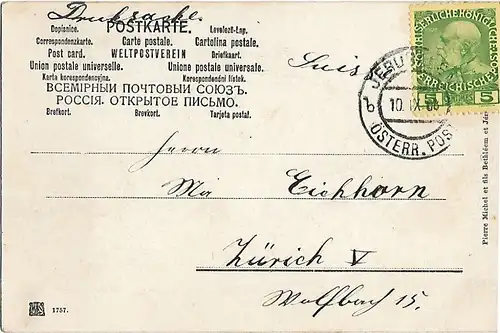 Drucksache.
POSTKARTE.
Dopisnice. Levelezó-Lap.
Correspondenzkarte. Carte postale. Briefkaart.
Post card. WELTPOSTVEREIN Cartolina postale.
Union postale universelle. Unione postale universale.
Karta korespondencyjna. Korespondenčni listek.
ВСЕМІРНЫЙ ПОЧТОВЫЙ СОЮЗЪ.
РОССІЯ. ОТКРЫТОЕ ПИСЬМО.
Brefkort. Brevkort. Tarjeta postal.
Suisse
5 5
JERUSALEM
b 10 IX 08
ÖSTERR. POST
Herrn
Eichhorn
Zürich V
Wolfbach 15.
Pierre Michel et fils Bethléem et
1757.